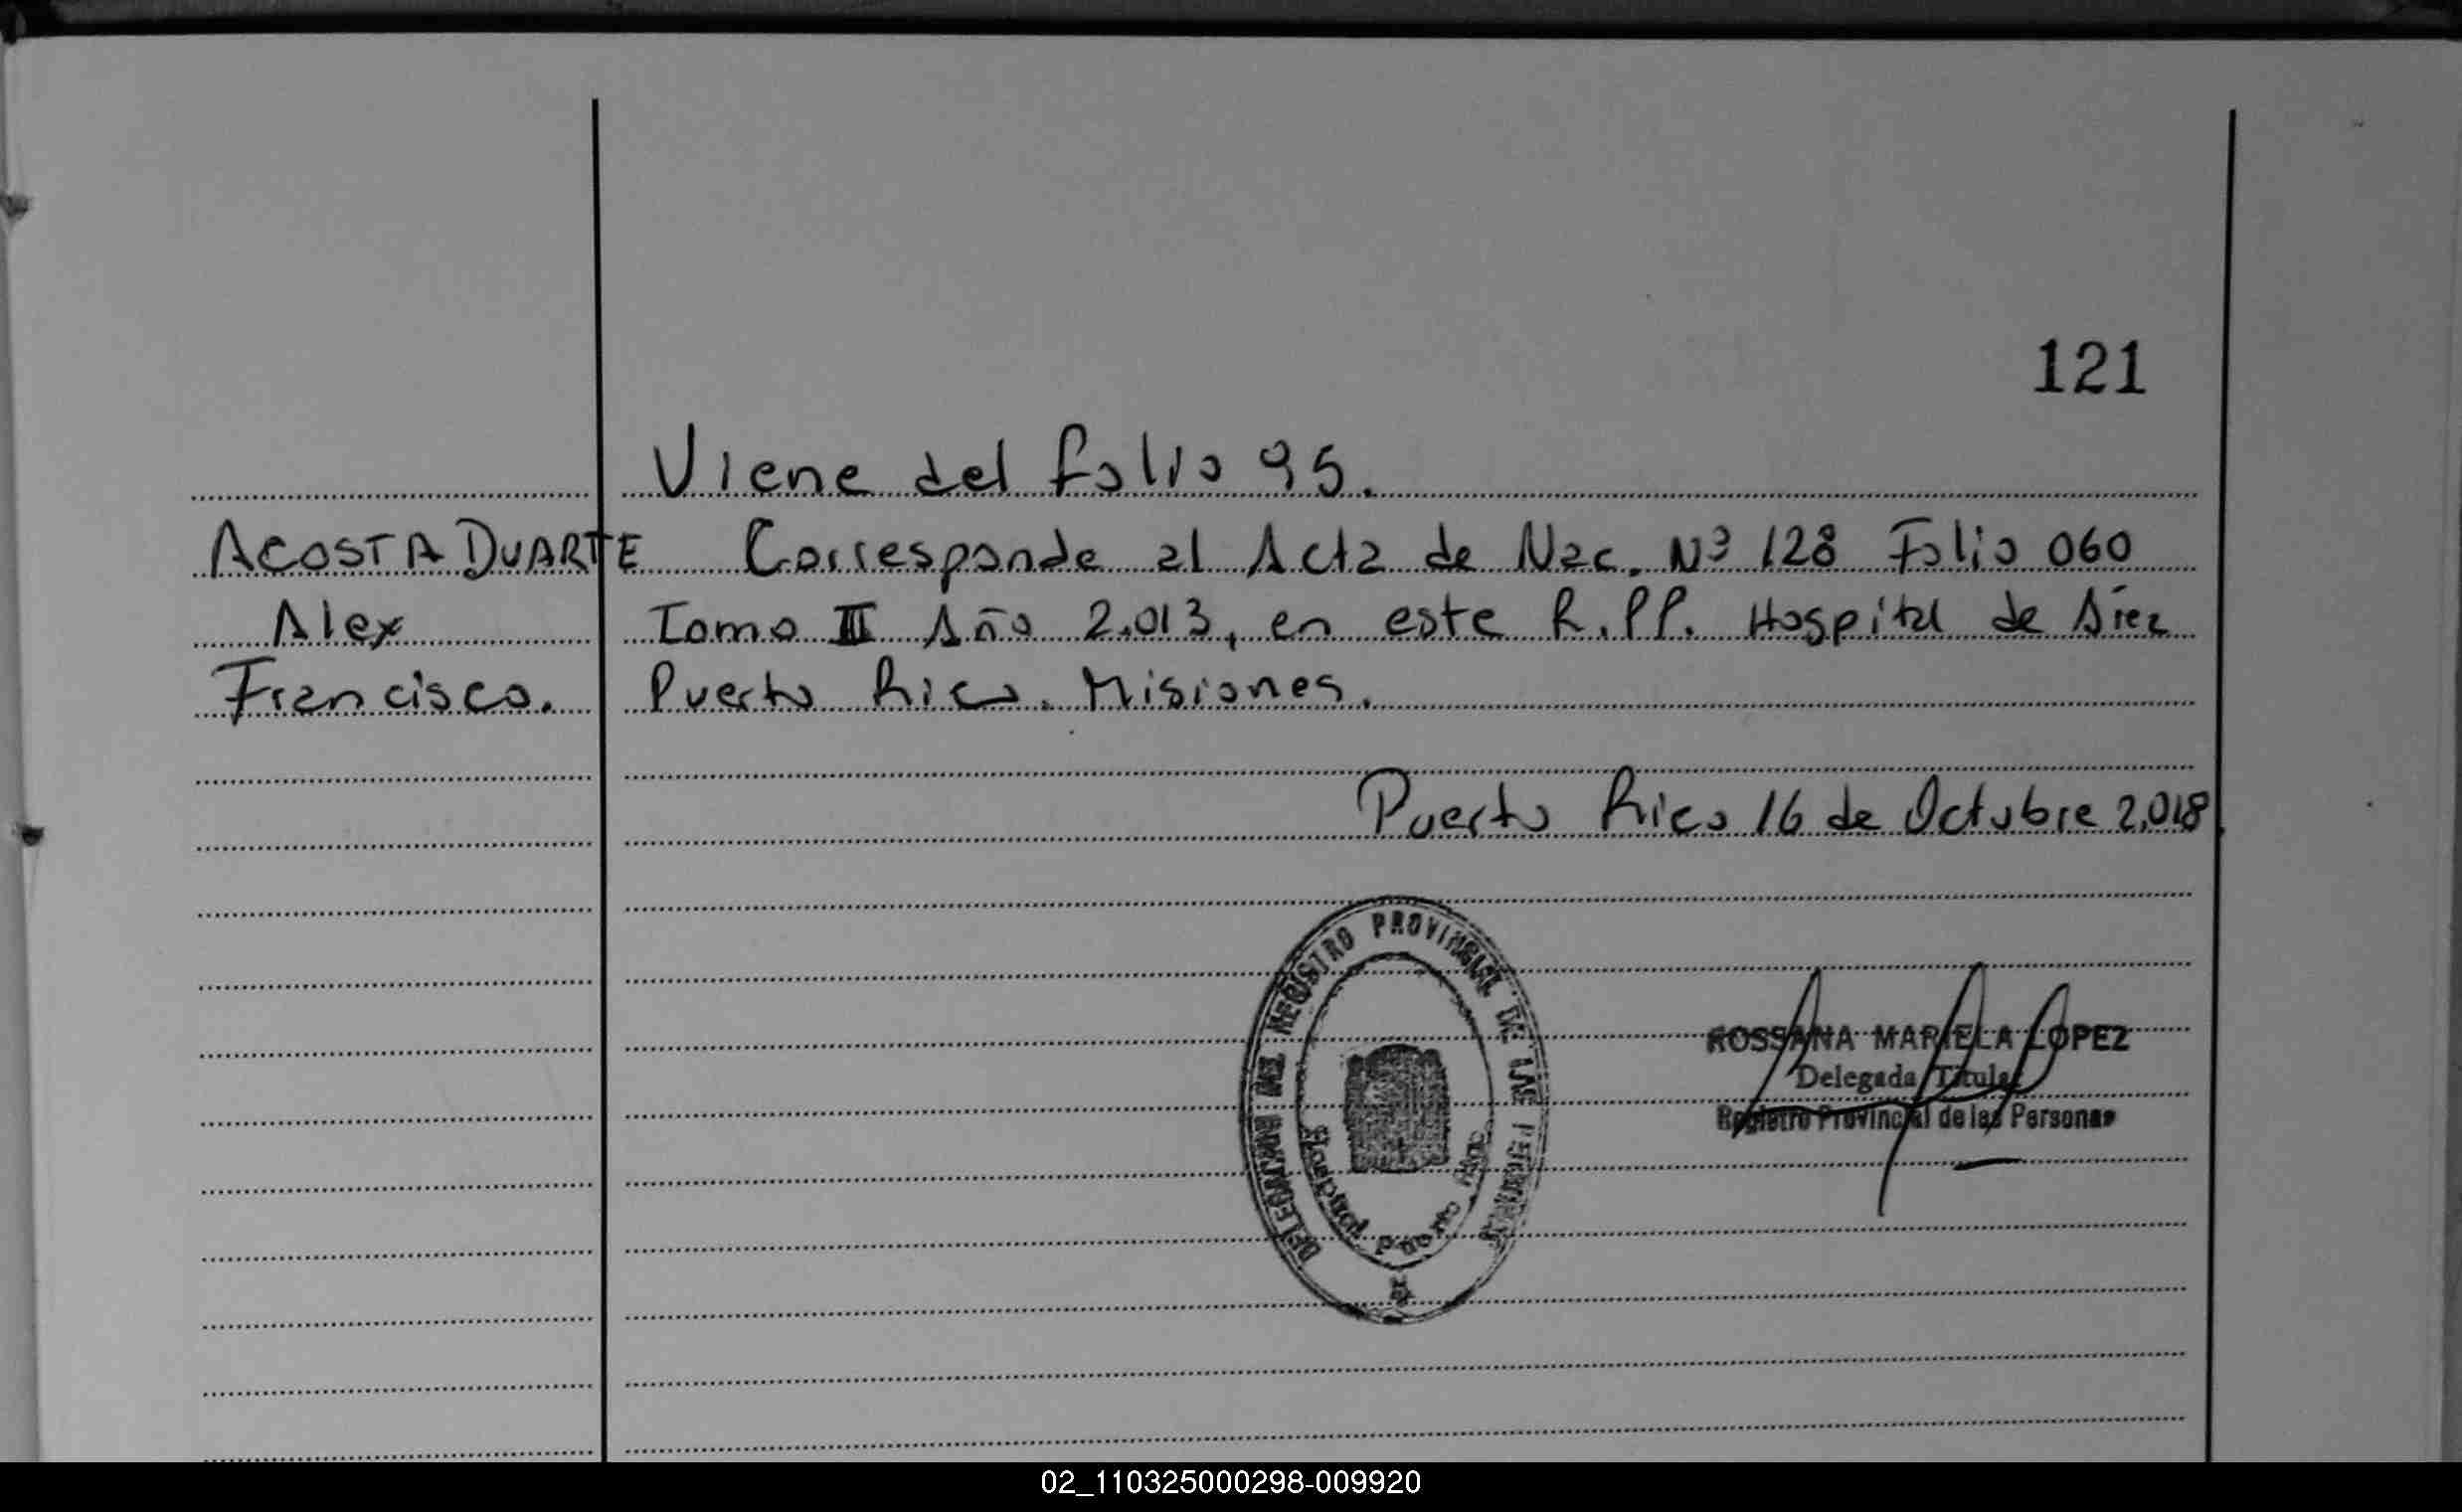 121
Viene del folio 95.
ACOSTA DUARTE Corresponde al Acta de Nac. Nº 128 Folio 060
Alex Tomo II Año 2.013, en este R.PP. Hospital de Área
Francisco. Puerto Rico. Misiones.
Puerto Rico 16 de Octubre 2.018.
DELEGACION DEL REGISTRO PROVINCIAL DE LAS PERSONAS
Hospital Puerto Rico
ROSSANA MARIELA LOPEZ
Delegada Titular
Registro Provincial de las Personas
02_110325000298-009920